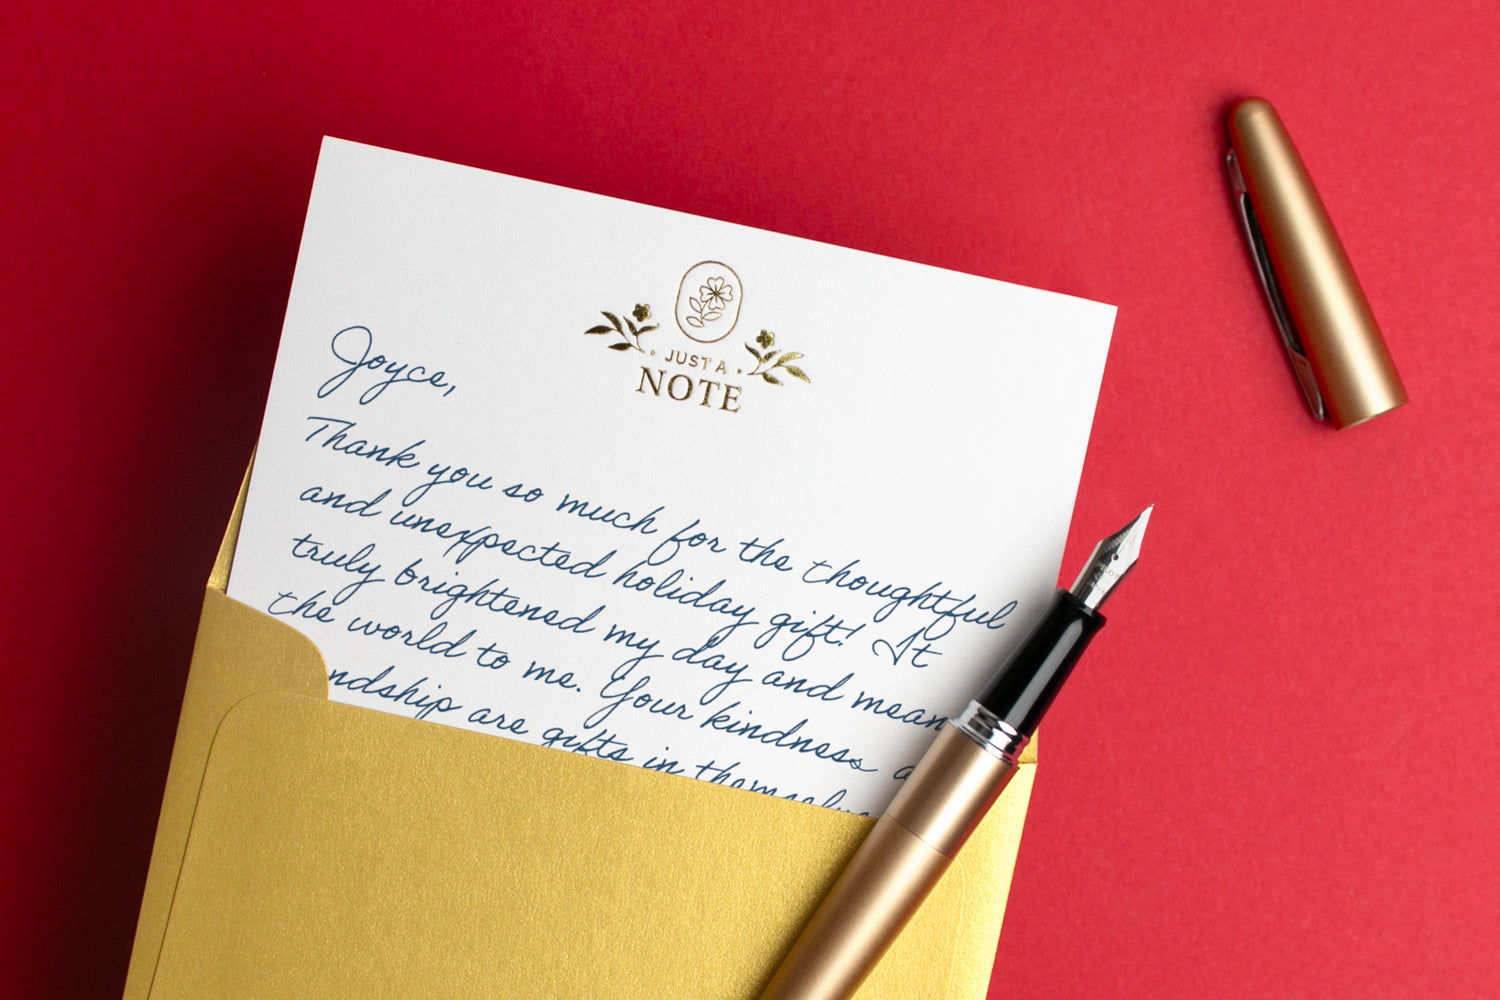 JUST A
NOTE
Joyce,
Thank you so much for the thoughtful
and unexpected holiday gift! It
truly brightened my day and mean
the world to me. Your kindness a
ndship are gifts in themselve